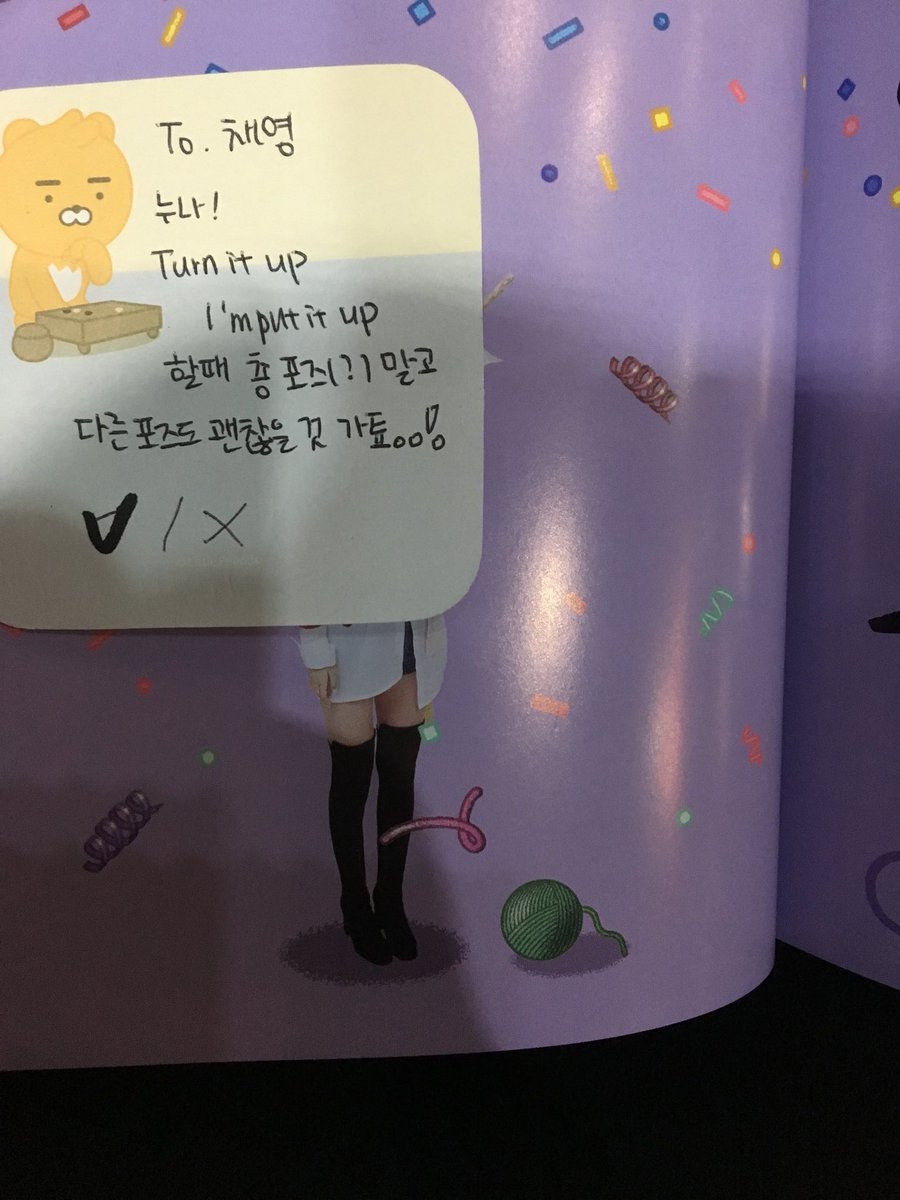 To. 채영
누나!
Turn it up
I'm put it up
할때 총 포즈(?) 말고
다른 포즈도 괜찮을 것 가튬..!
V / X